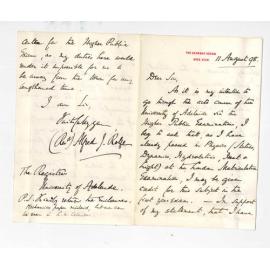 11 August 98.
Dear Sir,
As it is my intention to
go through the arts course of the
University of Adelaide via the
Higher Public Examination I
beg to ask that as I have
already passed in Physics (Statics,
Dynamics, Hydrostatics, Heat &
Light) at the London Matriculation
Examination I may be given
credit for this subject in the
first year exam. — In support
of my statement, that I have
for the Higher Public
Exam, as my duties here would
render it impossible for me to
be away from the for any
lengthened time.
I am Sir,
Faithfully yrs
(Rev) Alfred J.
The Registrar
University of Adelaide.
P.S. Kindly return the enclosures.